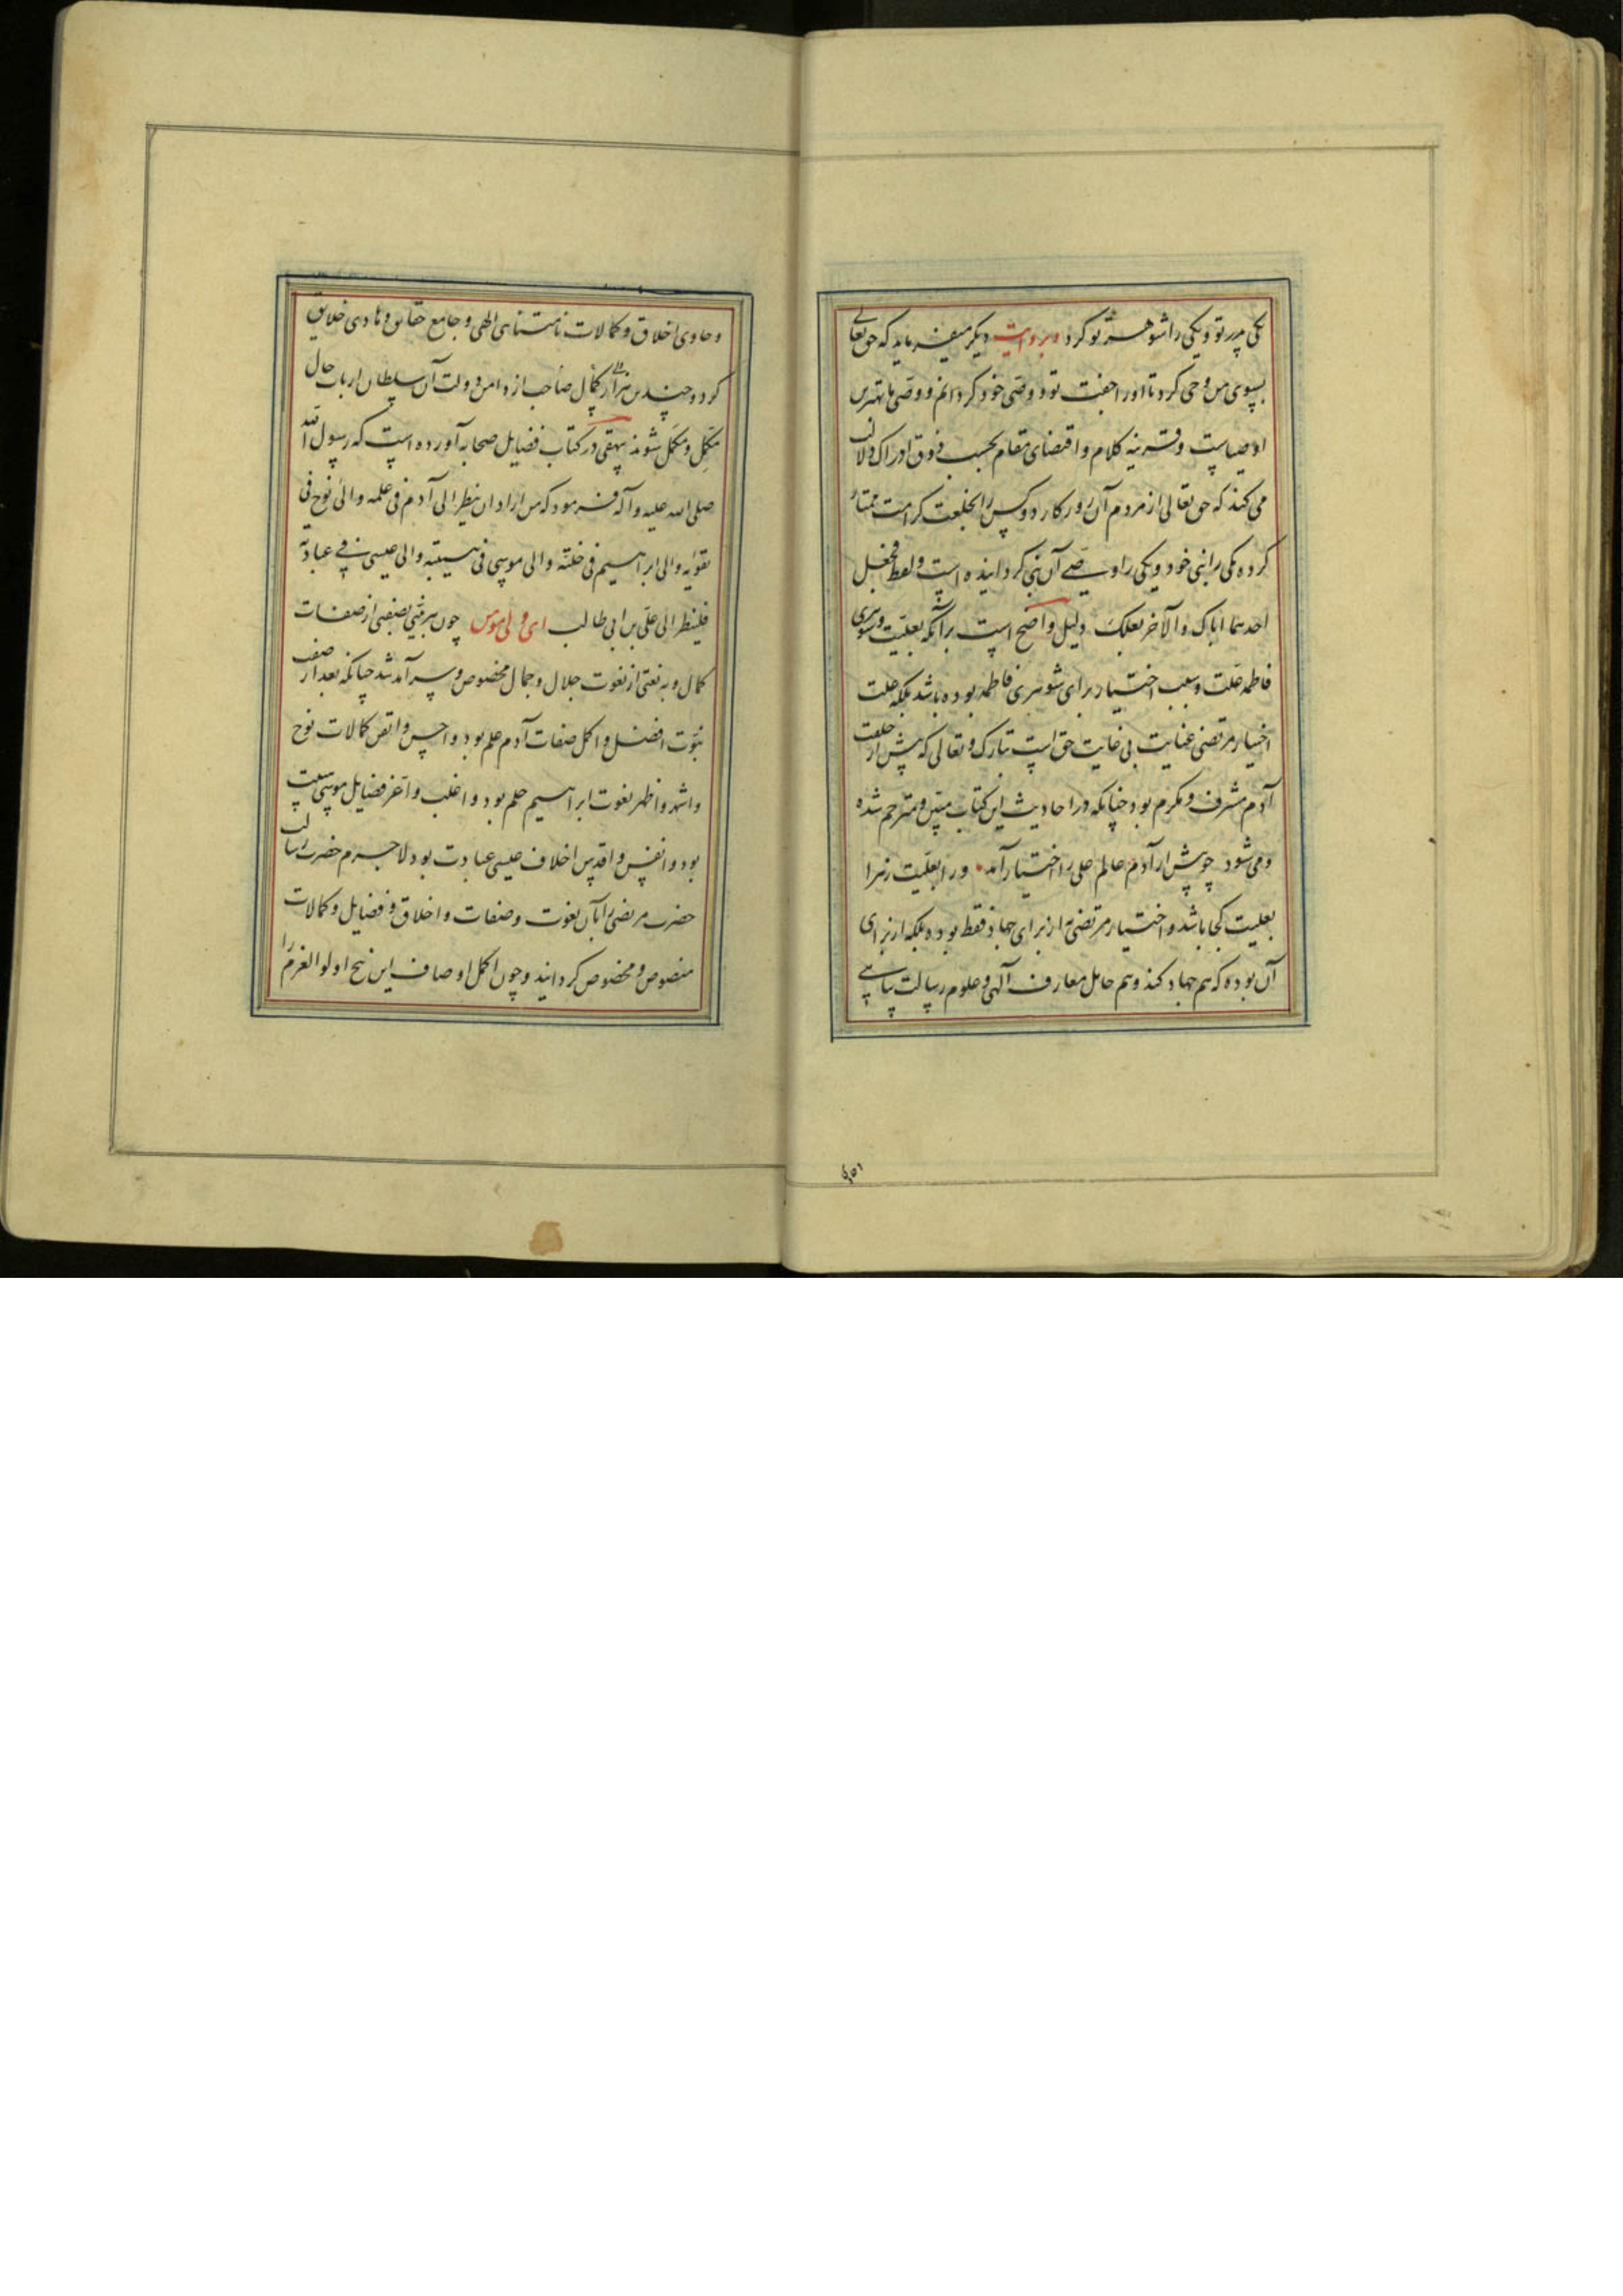 یکی پدر تو و یکی را شوهر تو کرد و بروایت دیگر میفرماید که حق تعالی
بسوی من وحی کرد تا او را جفت تو و وصی خود کردانم و وصی ما بهترین
اوصیاست و قرینه کلام و اقتضای مقام بحسب ذوق ادراک دلالت
می کند که حق تعالی از مردم آن روزکار دو کس را بخلعت کرامت ممتاز
کرده یکی را نبی خود و یکی را وصی آن نبی کردانیده است و لفظ فجعل
احدهما اباک والآخر بعلک دلیل واضح است بر آنکه بعلیت و شوهری
فاطمه علت و سبب اختیار برای شوهری فاطمه بوده باشد بلکه علت
اختیار مرتضی عنایت بی غایت حق است تبارک و تعالی که پیش از خلقت
آدم مشرف و مکرم بود چنانکه در احادیث این کتاب مبین و مترجم شده
و می شود چو پیش از آدم عالم علی را اختیار آمد ورا بعلیت زهرا
بعلیت کجا باشد و اختیار مرتضی نه از برای جهاد فقط بوده بلکه از برای
آن بوده که هم جهاد کند و هم حامل معارف آلهی و علوم رسالت پناهی
و حاوی اخلاق و کمالات نامتناهی الهی و جامع حقایق و هادی خلایق
کردد و چندین هزار کمال صاحب از دامن دولت آن سلطان ارباب حال
مکمل و مکمل شوند بیهقی در کتاب فضایل صحابه آورده است که رسول الله
صلی الله علیه و آله فرمود که من اراد ان ینظر الی آدم فی علمه و الی نوح فی
تقویه و الی ابراهیم فی خلته و الی موسی فی هیبته و الی عیسی فی عبادته
فلینظر الی علی بن ابی طالب ای ولی مومن چون هر نبی بصفتی از صفات
کمال و به نعتی از نعوت جلال و جمال مخصوص و سرآمد شد چنانکه بعد از صفت
نبوت افضل و اکمل صفات آدم علم بود و احسن و اتقن کمالات نوح
و اشهر و اظهر نعوت ابراهیم حلم بود و اغلب و اعز فضایل موسی هیبت
بود و انفس و اقدس اخلاق عیسی عبادت بود لاجرم حضرت رسالت
حضرت مرتضی را بآن نعوت و صفات و اخلاق و فضایل و کمالات
منصوص و مخصوص کردانید و چون اکمل اوصاف این پنج اولو العزم را